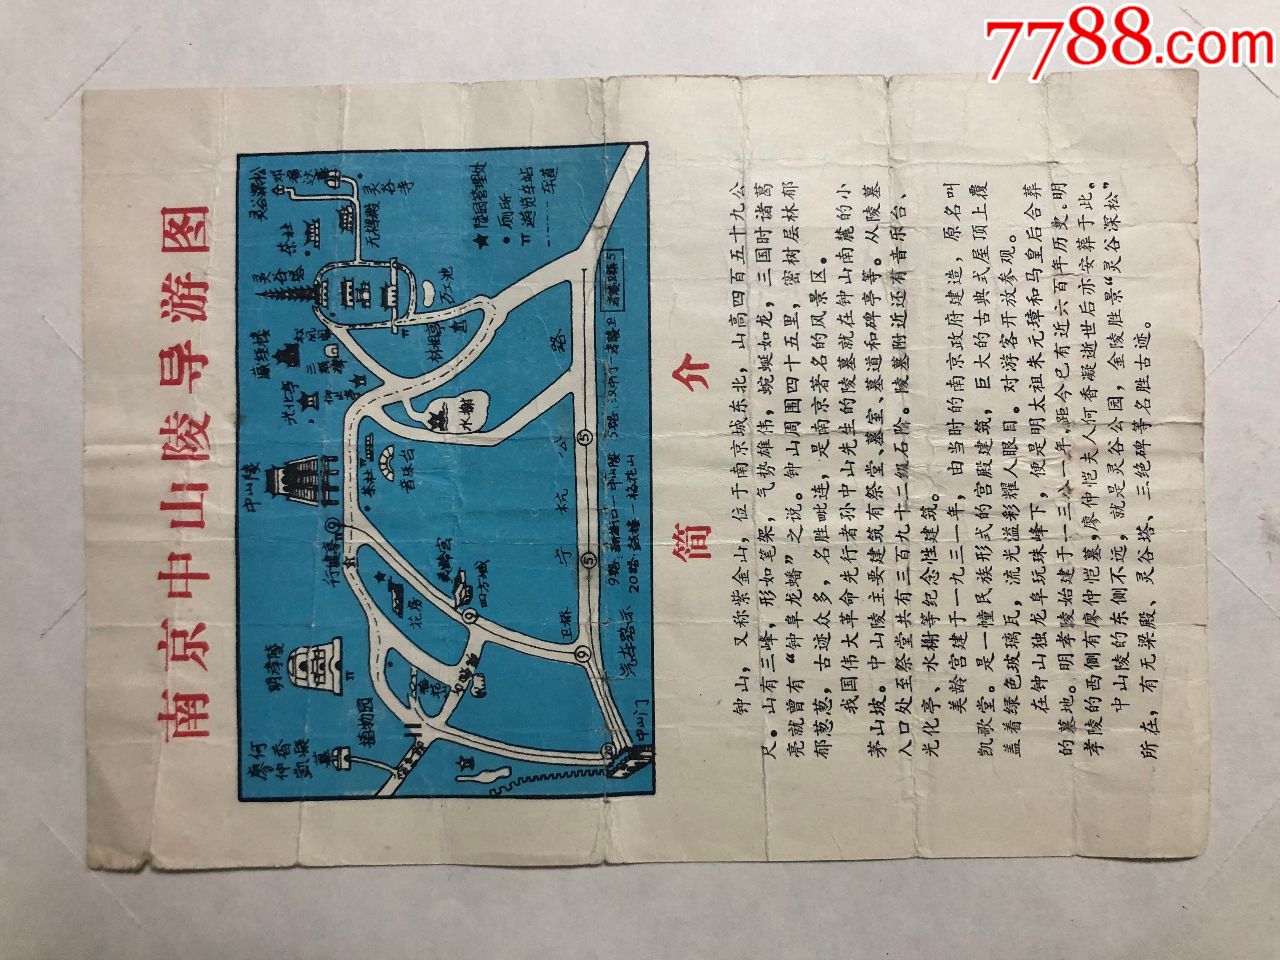 7788.com
南京中山陵导游图
廖仲凯
何香凝
墓
植物园
明孝陵
行健亭
中山陵
光化亭
仰止亭
藏经楼
灵谷塔
茶社
灵谷深松
灵谷寺
无梁殿
茶社
音乐台
水榭
花房
美龄宫
四方城
中山门
卫桥
宁杭公路
★陵园管理处
●厕所
游览车站
车道
汽车路示
9路:新街口—中山陵
20路:鼓楼—梅花山
简介
钟山,又称紫金山,位于南京城东北,山高四百五十九公
尺。山有三峰,形如笔架,气势雄伟,蜿蜒如龙,三国时诸葛
亮就曾有“钟阜龙蟠”之说。钟山周围四十五里,密树层林郁
郁葱葱,古迹众多,名胜毗连,是南京著名的风景区。
我国伟大革命先行者孙中山先生的陵墓就在钟山南麓的小
茅山坡。中山陵主要建筑有祭堂、墓室、墓道和碑亭等。从陵墓
入口处至祭堂共有三百九十二级石阶。陵墓附近还有音乐台、
光化亭、水榭等纪念性建筑。
美龄宫建于一九三一年,由当时的南京政府建造,原名叫
凯歌堂。是一幢民族形式的宫殿建筑,巨大的古典式屋顶上覆
盖着绿色玻璃瓦,流光溢彩耀人眼目。对游客开放参观。
在钟山独龙阜玩珠峰下,便是明太祖朱元璋和马皇后合葬
的墓地。明孝陵始建于一三八一年,距今已有近六百年历史。明
孝陵的西侧有廖仲恺墓,廖仲恺夫人何香凝逝世后亦安葬于此。
中山陵的东侧不远,就是灵谷公园,金陵胜景“灵谷深松”
所在,有无梁殿、灵谷塔、三绝碑等名胜古迹。